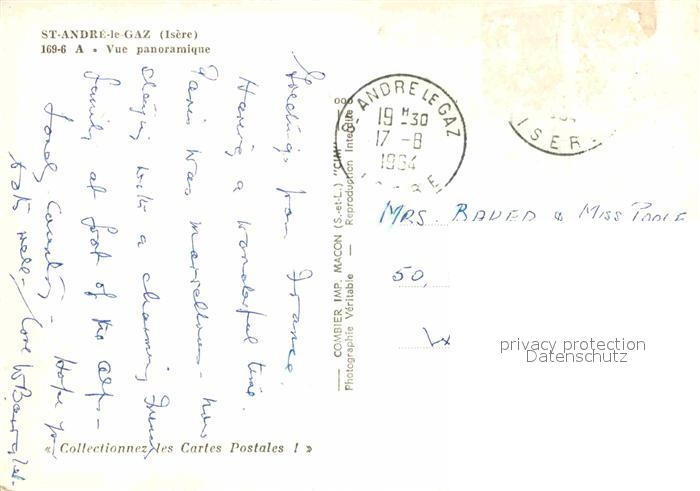 ST-ANDRÉ-le-GAZ (Isère)
169-6 A - Vue panoramique
Greetings from France.
Having a wonderful time.
Paris was marvellous - now
staying with a charming French
family at foot of the alps -
lovely country - Hope you
both well - love
« Collectionnez les Cartes Postales ! »
COMBIER IMP. MACON (S.-et-L.) "CIM"
Photographie Véritable — Reproduction Interdite
ST ANDRE LE GAZ
19 H 30
17 - 8
1964
ISERE
ISERE
MRS. & MISS POOLE
50,
privacy protection
Datenschutz